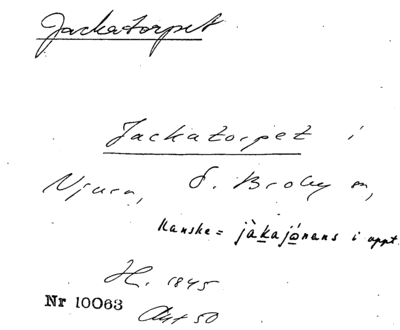 Jackatorpet
Jackatorpet i
Njurn, Ö. Broby sn,
Kanske = jàkajónans i uppt.
H. 1845
Nr 10063
Akt 50